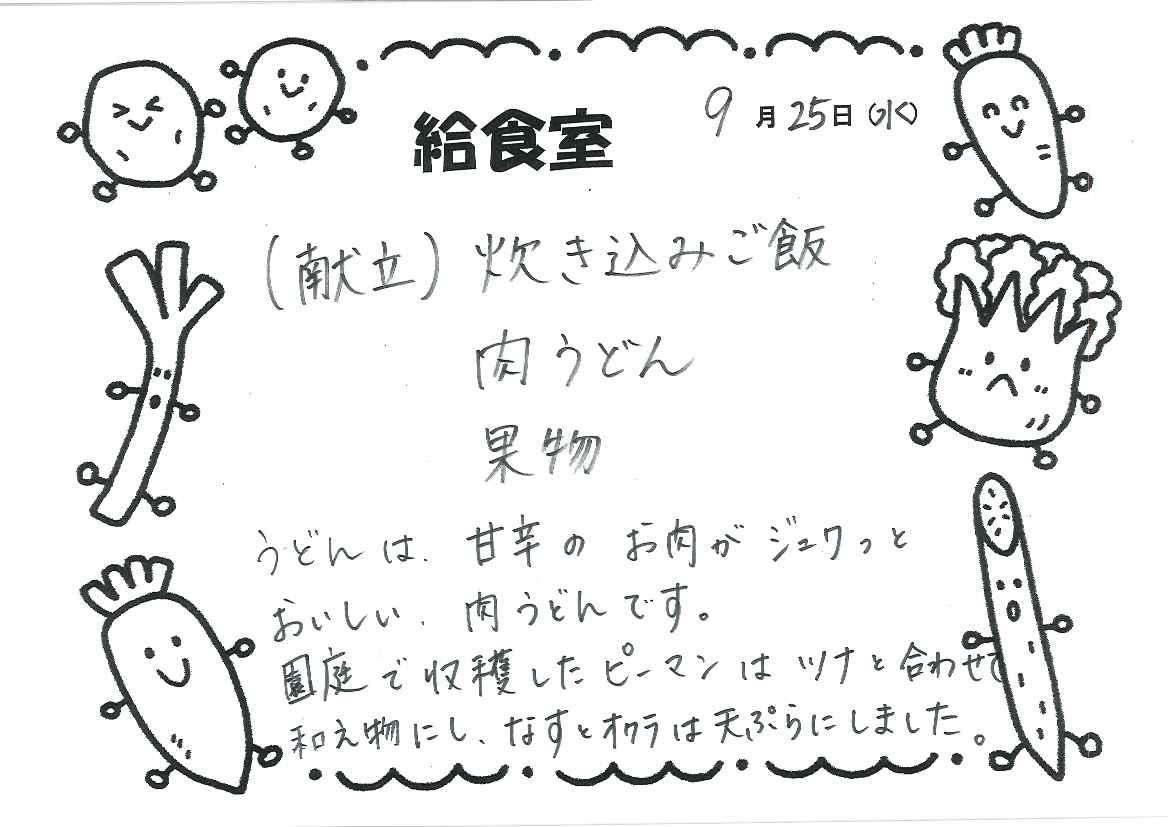 給食室
9月25日(水)
(献立) 炊き込みご飯
肉うどん
果物
うどんは、甘辛のお肉がジュワっと
おいしい、肉うどんです。
園庭で収穫したピーマンはツナと合わせて
和え物にし、なすとオクラは天ぷらにしました。